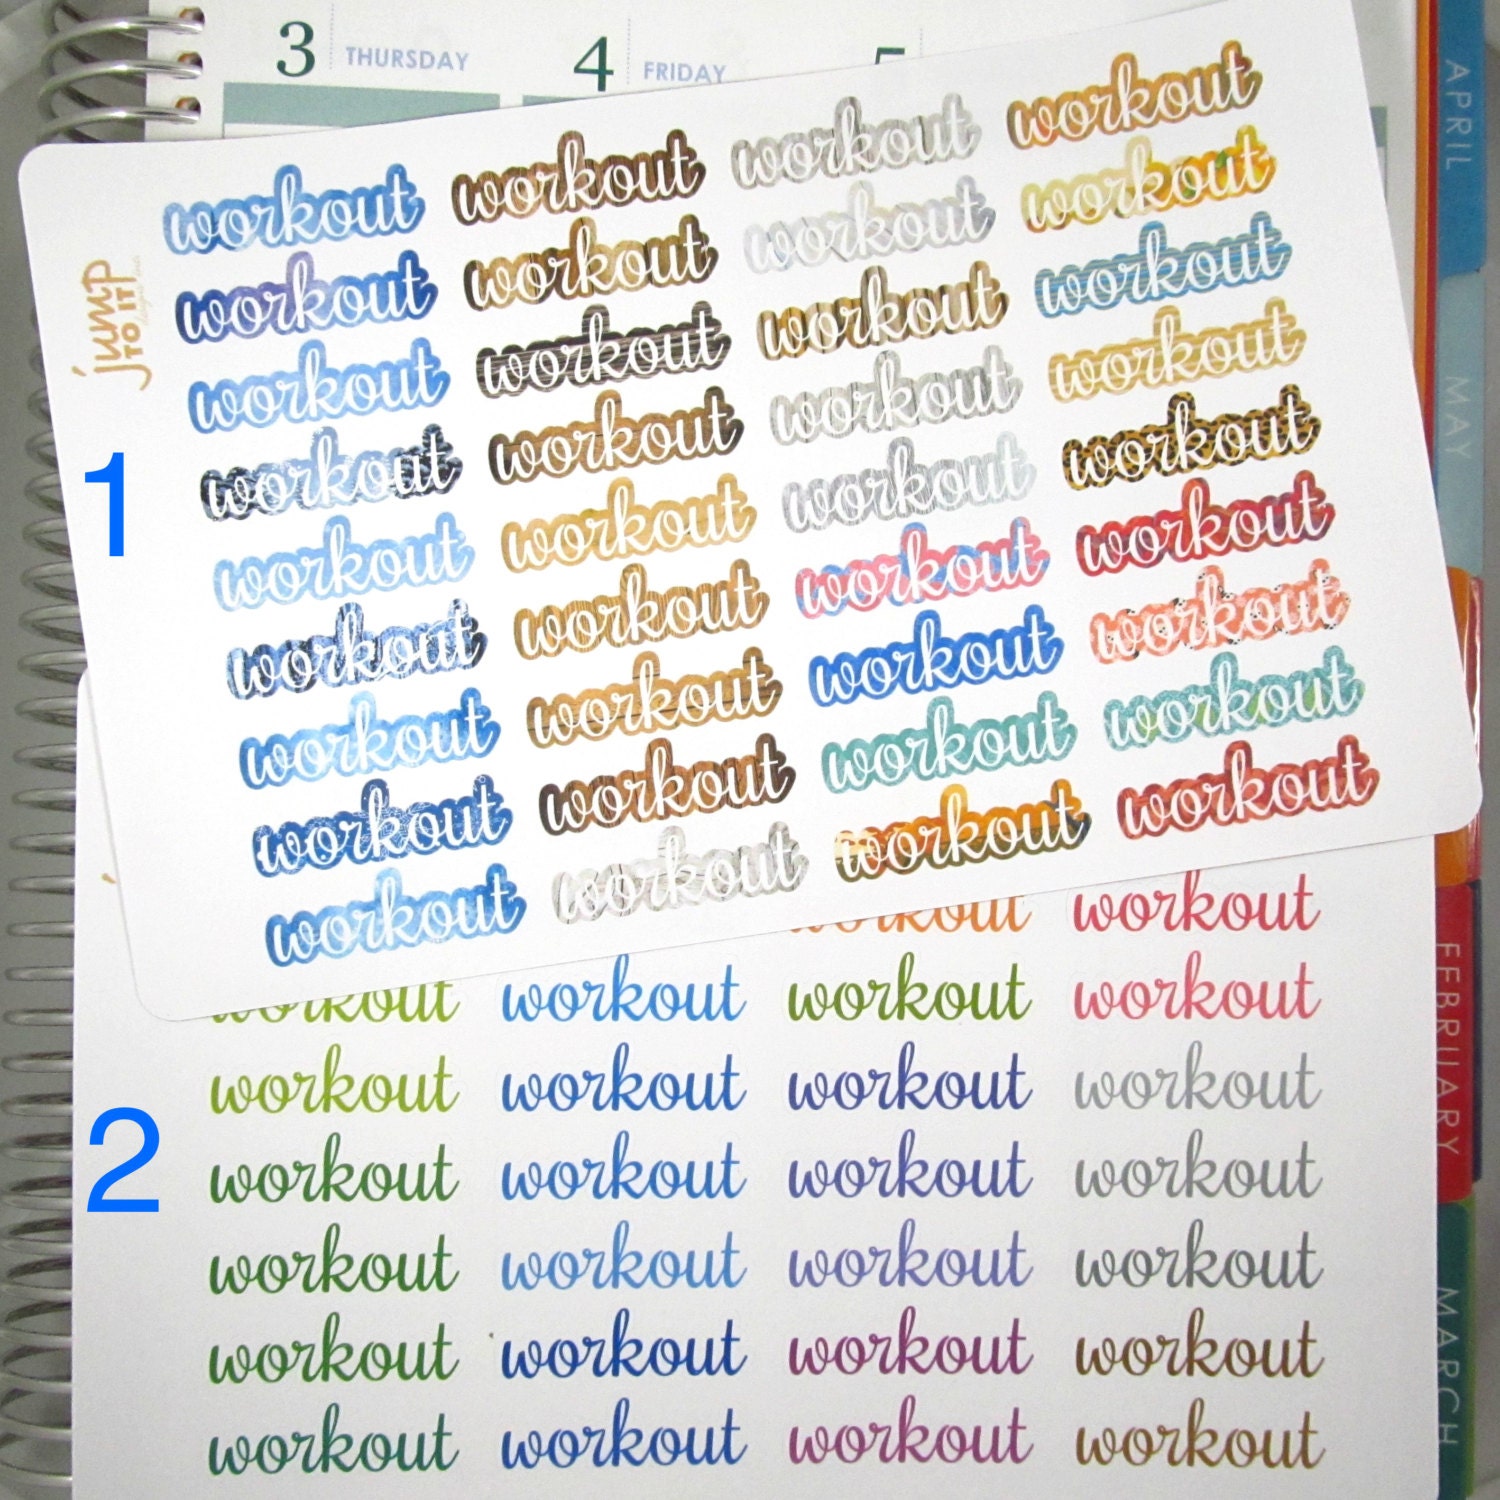 3 THURSDAY
4 FRIDAY
5
APRIL
MAY
FEBRUARY
MARCH
jump
TO IT
1
workout workout workout workout
workout workout workout workout
workout workout workout workout
workout workout workout workout
workout workout workout workout
workout workout workout workout
workout workout workout workout
workout workout workout workout
workout workout workout workout
2
workout workout
workout workout workout workout
workout workout workout workout
workout workout workout workout
workout workout workout workout
workout workout workout workout
workout workout workout workout